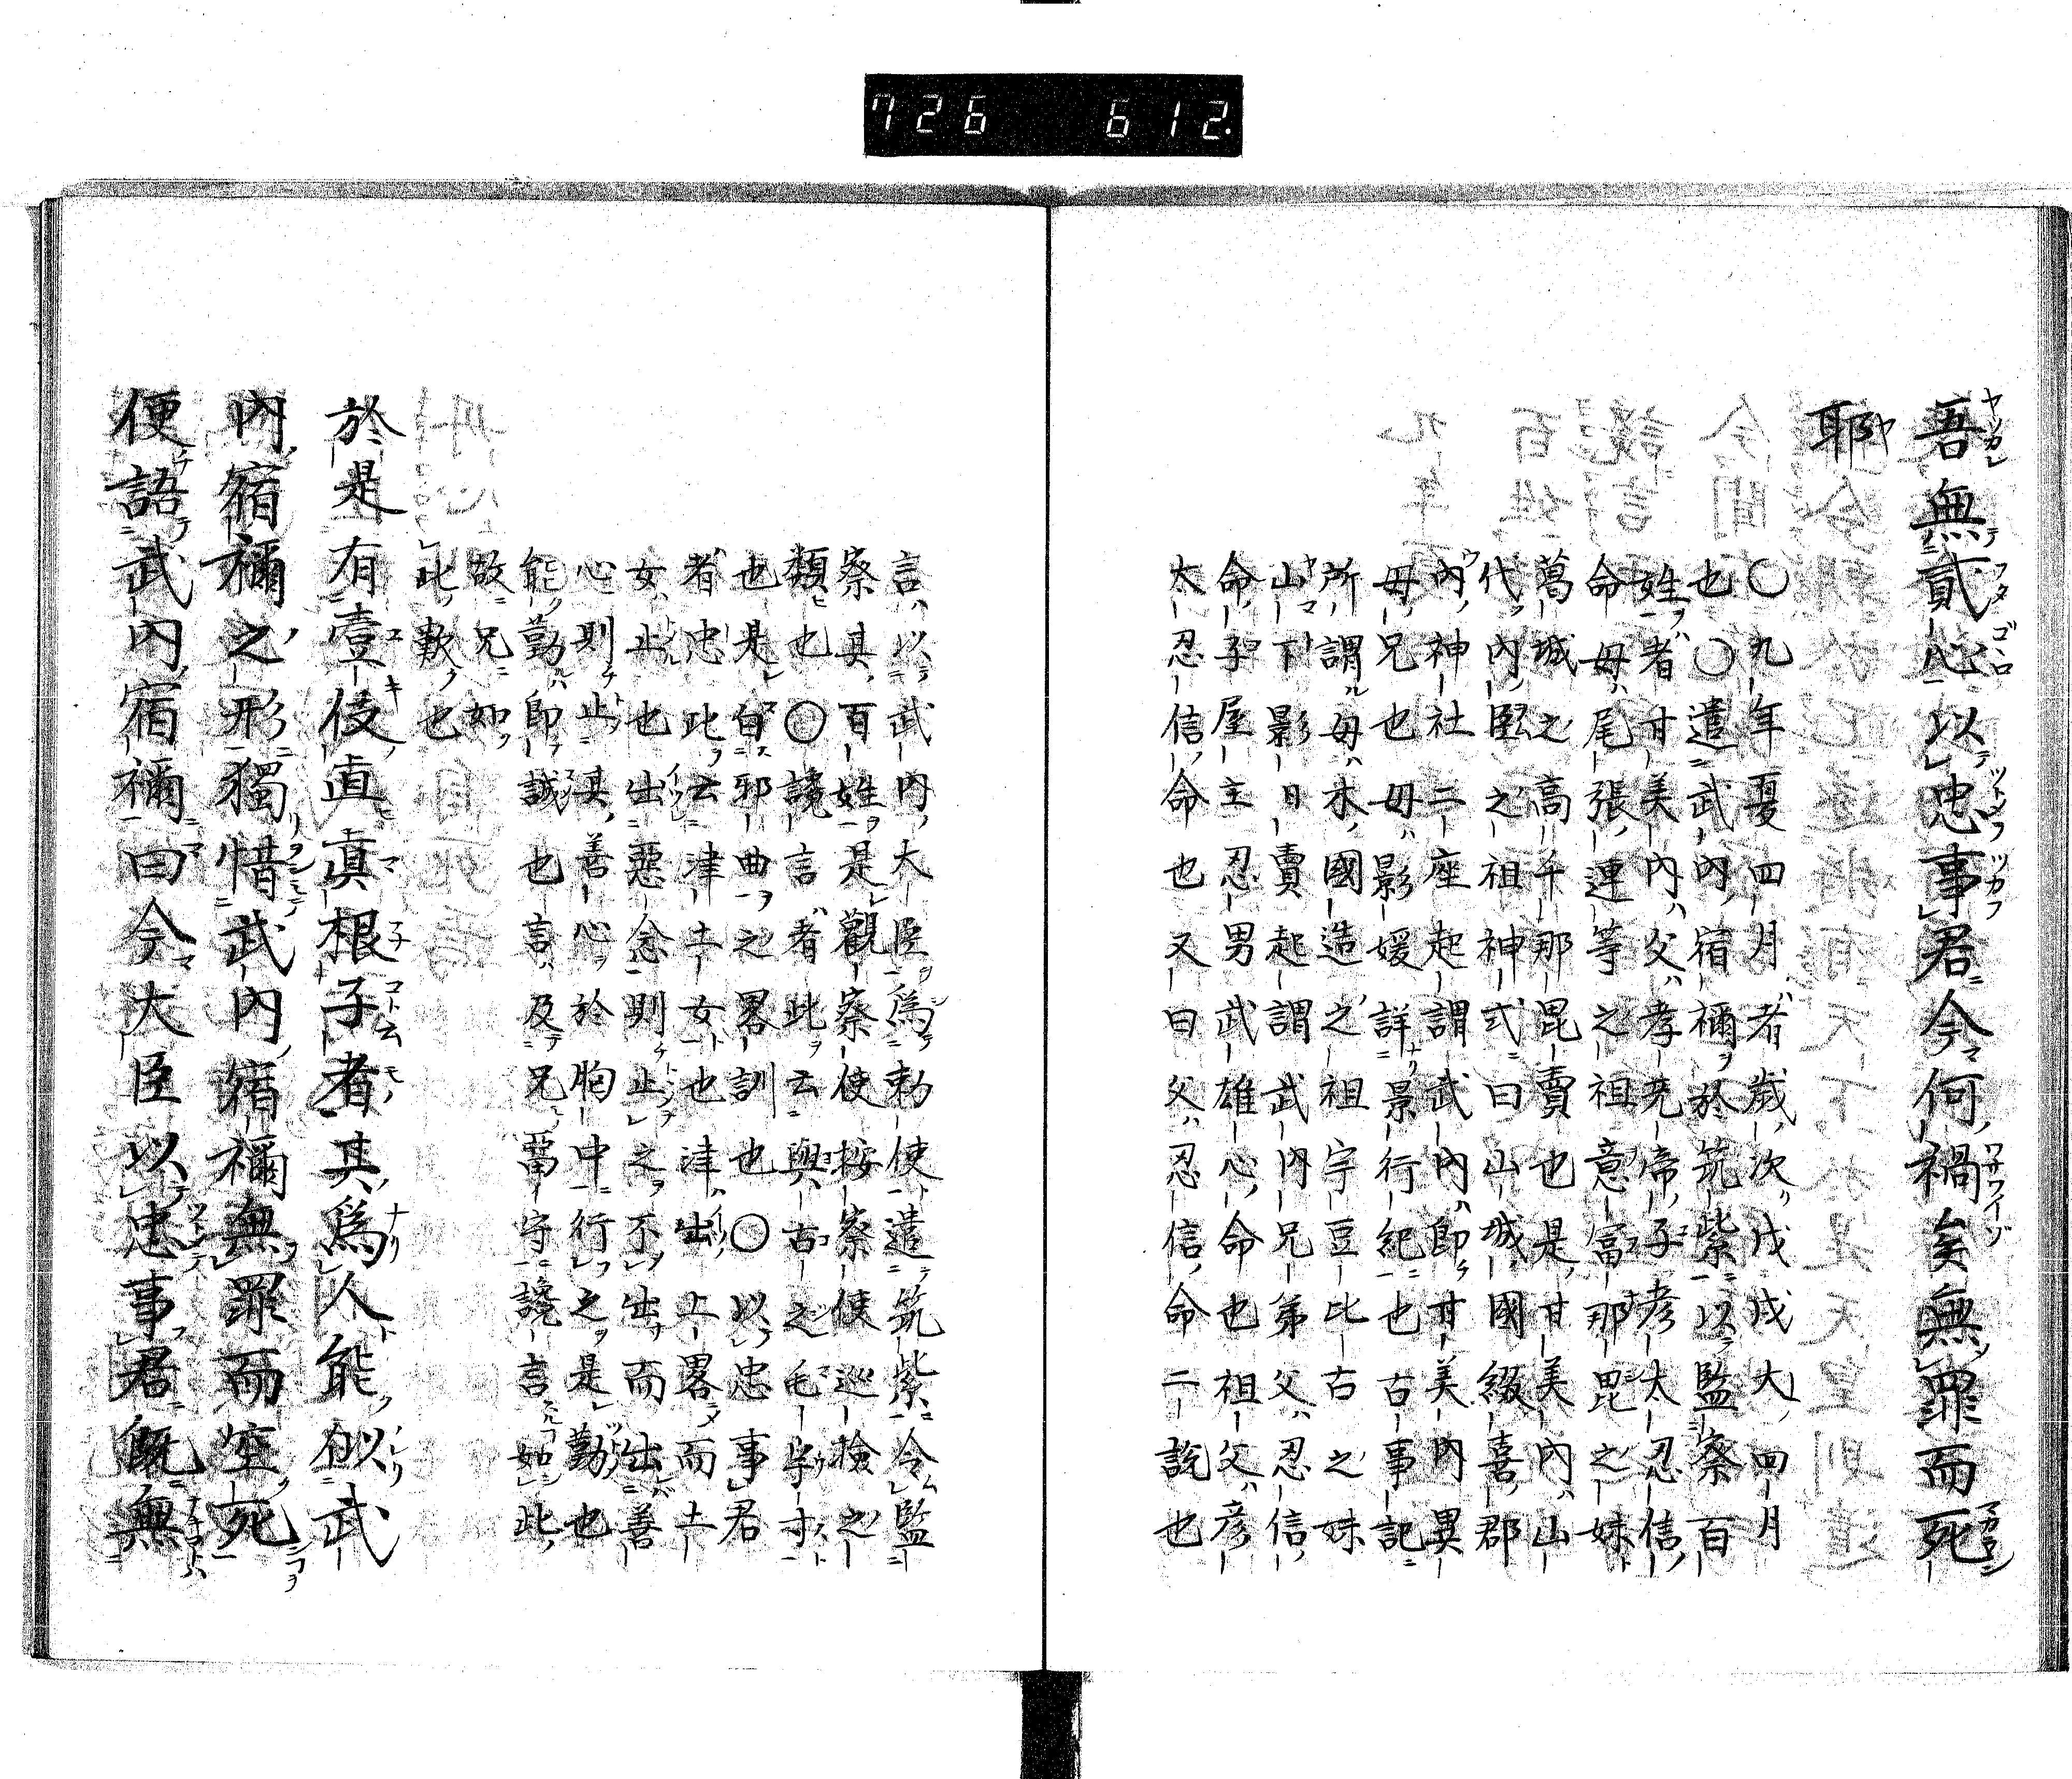 726 612.
吾無貳心以忠事君今何禍矣無罪而死
耶
〇九年夏四月者歳次戊戌大四月
也〇遣武內宿禰於筑紫以監察百
姓者甘美內父孝元帝子彥太忍信
命母尾張連等之祖意富那毘之妹
葛城之高千那毘賣也是甘美內山
代內臣之祖神式曰山城國綴喜郡
內神社二座起謂武內即甘美內異
母兄也母影媛詳景行紀也古事記
所謂母木國造之祖宇豆比古之妹
山下影日賣起謂武內兄弟父忍信
命孫屋主忍男武雄心命也祖父彥
太忍信命也又曰父忍信命二說也
言以武內大臣為勅使遣筑紫令監
察其百姓是觀察使按察使巡檢之
類也〇讒言者此云與古之毛宇寸
也是白邪曲之畧訓也〇以忠事君
者忠此云津土女也津出止畧而土
女止也出惡念則止之不出而出善
心則止其善心於胸中行之是勤也
能勤即誠也言及兄當守讒言如此
故兄如
此歎也
於是有壹伎直眞根子者其爲人能似武
內宿禰之形獨惜武內宿禰無罪而空死
便語武內宿禰曰今大臣以忠事君既無